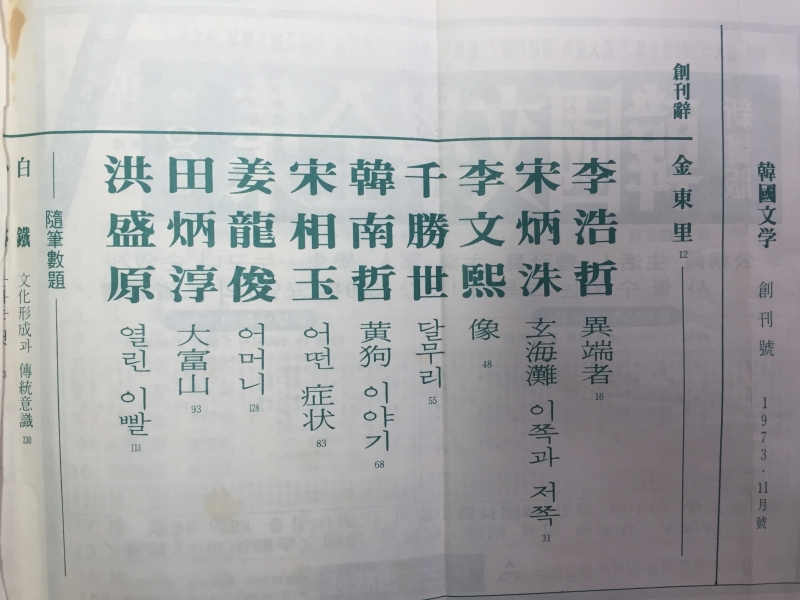 韓國文学 創刊號 1973·11月號
創刊辭 金東里 12
李浩哲 異端者 16
宋炳洙 玄海灘 이쪽과 저쪽 31
李文熙 像 48
千勝世 달무리 55
韓南哲 黃狗 이야기 68
宋相玉 어떤 症状 83
姜龍俊 어머니 128
田炳淳 大富山 93
洪盛原 열린 이빨 113
隨筆數題
白鐵 文化形成과 傳統意識 230